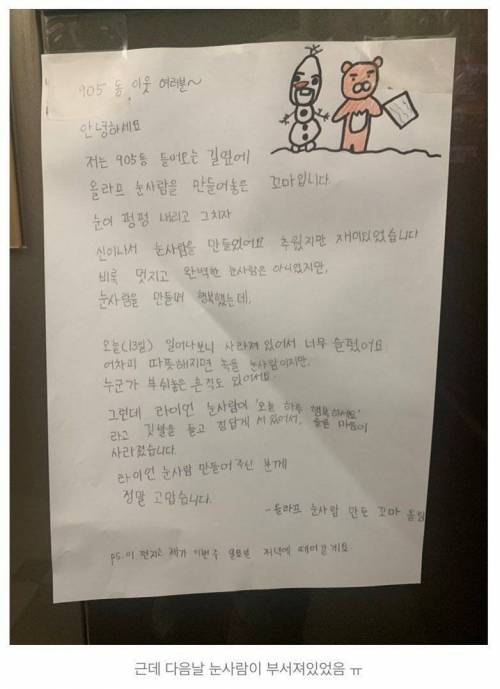 905동 이웃 여러분~
안녕하세요
저는 905동 들어오는 길옆에
올라프 눈사람을 만들어놓은 꼬마입니다.
눈이 펑펑 내리고 그치자
신이나서 눈사람을 만들었어요 추웠지만 재미있었습니다
비록 멋지고 완벽한 눈사람은 아니였지만,
눈사람을 만들며 행복했는데,
오늘(13일) 일어나보니 사라져 있어서 너무 슬펐어요
어차피 따뜻해지면 녹을 눈사람이지만,
누군가 부숴놓은 흔적도 있어서요.
그런데 라이언 눈사람이 '오늘 하루 행복하세요'
라고 깃발을 들고 집답게 서있어서, 슬픈 마음이
사라졌습니다.
라이언 눈사람 만들어 주신 분께
정말 고맙습니다.
-올라프 눈사람 만든 꼬마 올림
ps.이 편지는 제가 이번주 일요일 저녁에 떼어갈게요
근데 다음날 눈사람이 부서져있었음 ㅠ